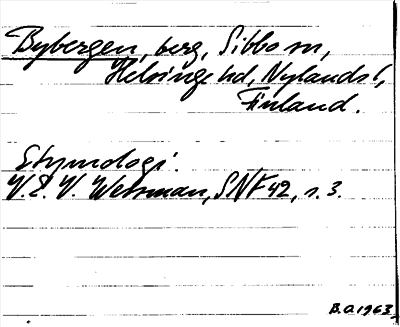 Bybergen, berg, Sibbo sn,
Helsinge hd, Nylands l,
Finland.
Etymologi.
V. E. V. Wessman, SNF 42, s. 3.
B.a 1963